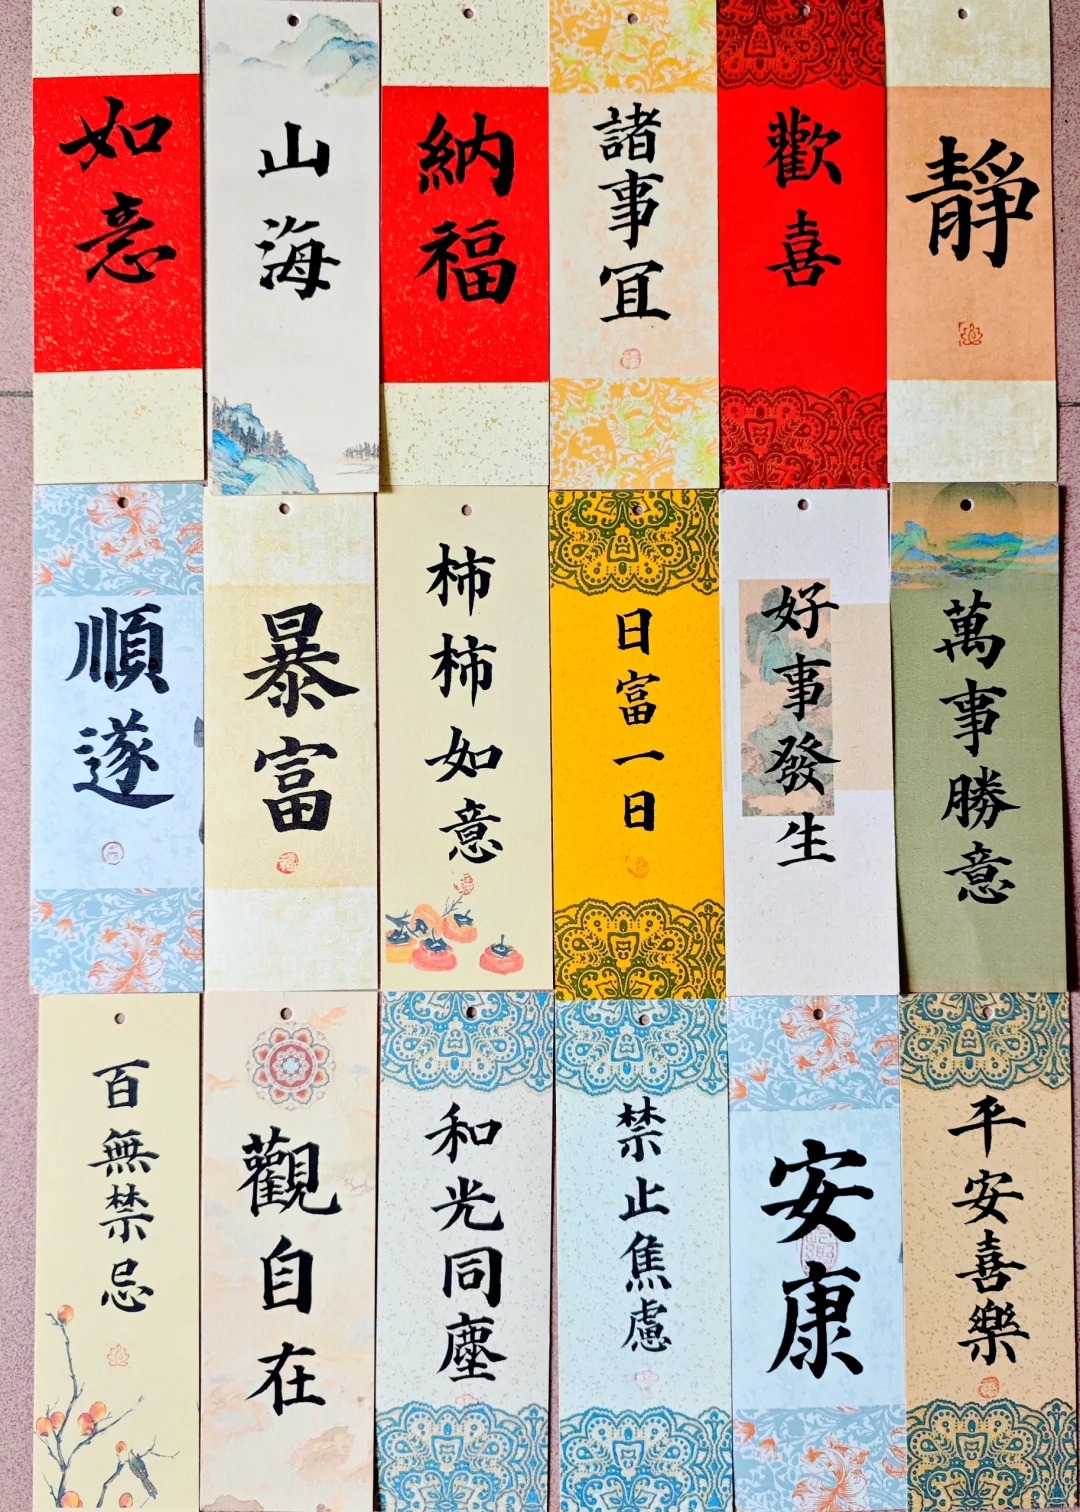 如意
山海
納福
諸事冝
歡喜
靜
順遂
暴富
柿柿如意
日富一日
好事發生
萬事勝意
百無禁忌
觀自在
和光同塵
禁止焦慮
安康
平安喜樂